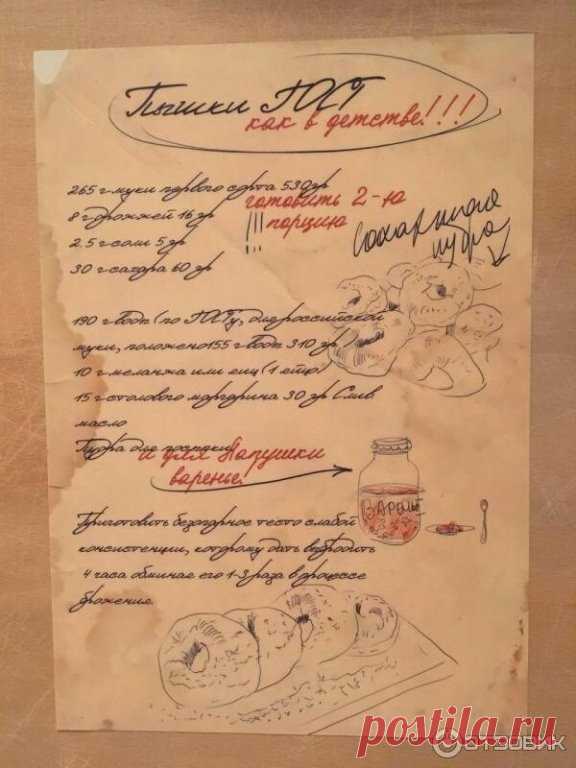 Пышки ГОСТ
как в детстве!!!
265 г муки первого сорта 530гр
готовить 2-ю
8 г дрожжей 16 гр
!!! порцию
2.5 г соли 5 гр
Сахарная
пудра
30 г сахара 60 гр
190 г воды (по ГОСТу, для российской
муки, положено 155 г воды 310 гр
10 г меланжа или яиц (1 яйцо)
15 г столового маргарина 30 гр Слив.
масло
Пудра для посыпки
и для Папушки
варенье!
ВАРЕНЬЕ
Приготовить безопарное тесто слабой
консистенции, которому дать выбродить
4 часа обминая его 1-3 раза в процессе
брожения
postila.ru
ОТЗОВИК